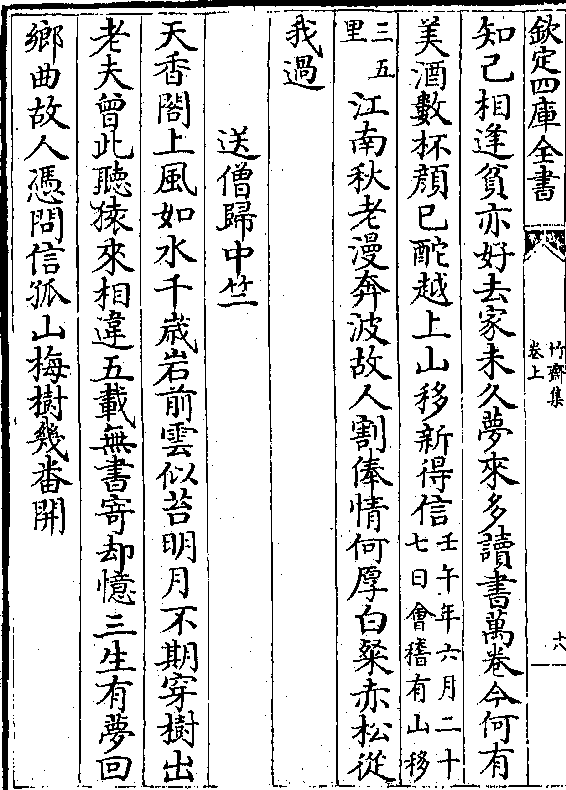 欽定四庫全書
竹齋集
卷上
十六
知己相逢貧亦好去家未久夢來多讀書萬卷今何有
美酒數杯顔已酡越上山移新得信壬午年六月二十
七日會稽有山移
三五
里江南秋老漫奔波故人割俸情何厚白粲赤松從
我過
送僧歸中竺
天香閣上風如水千歲岩前雲似苔明月不期穿樹出
老夫曾此聽猿來相違五載無書寄却憶三生有夢回
鄉曲故人憑問信孤山梅樹幾番開